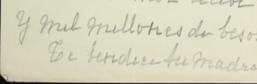 Y mil millones de beso
Te bendice tu madre